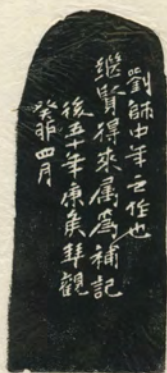 劉師中年之作也
繼賢得來属爲補記
後五十年康矦拜觀
癸卯四月